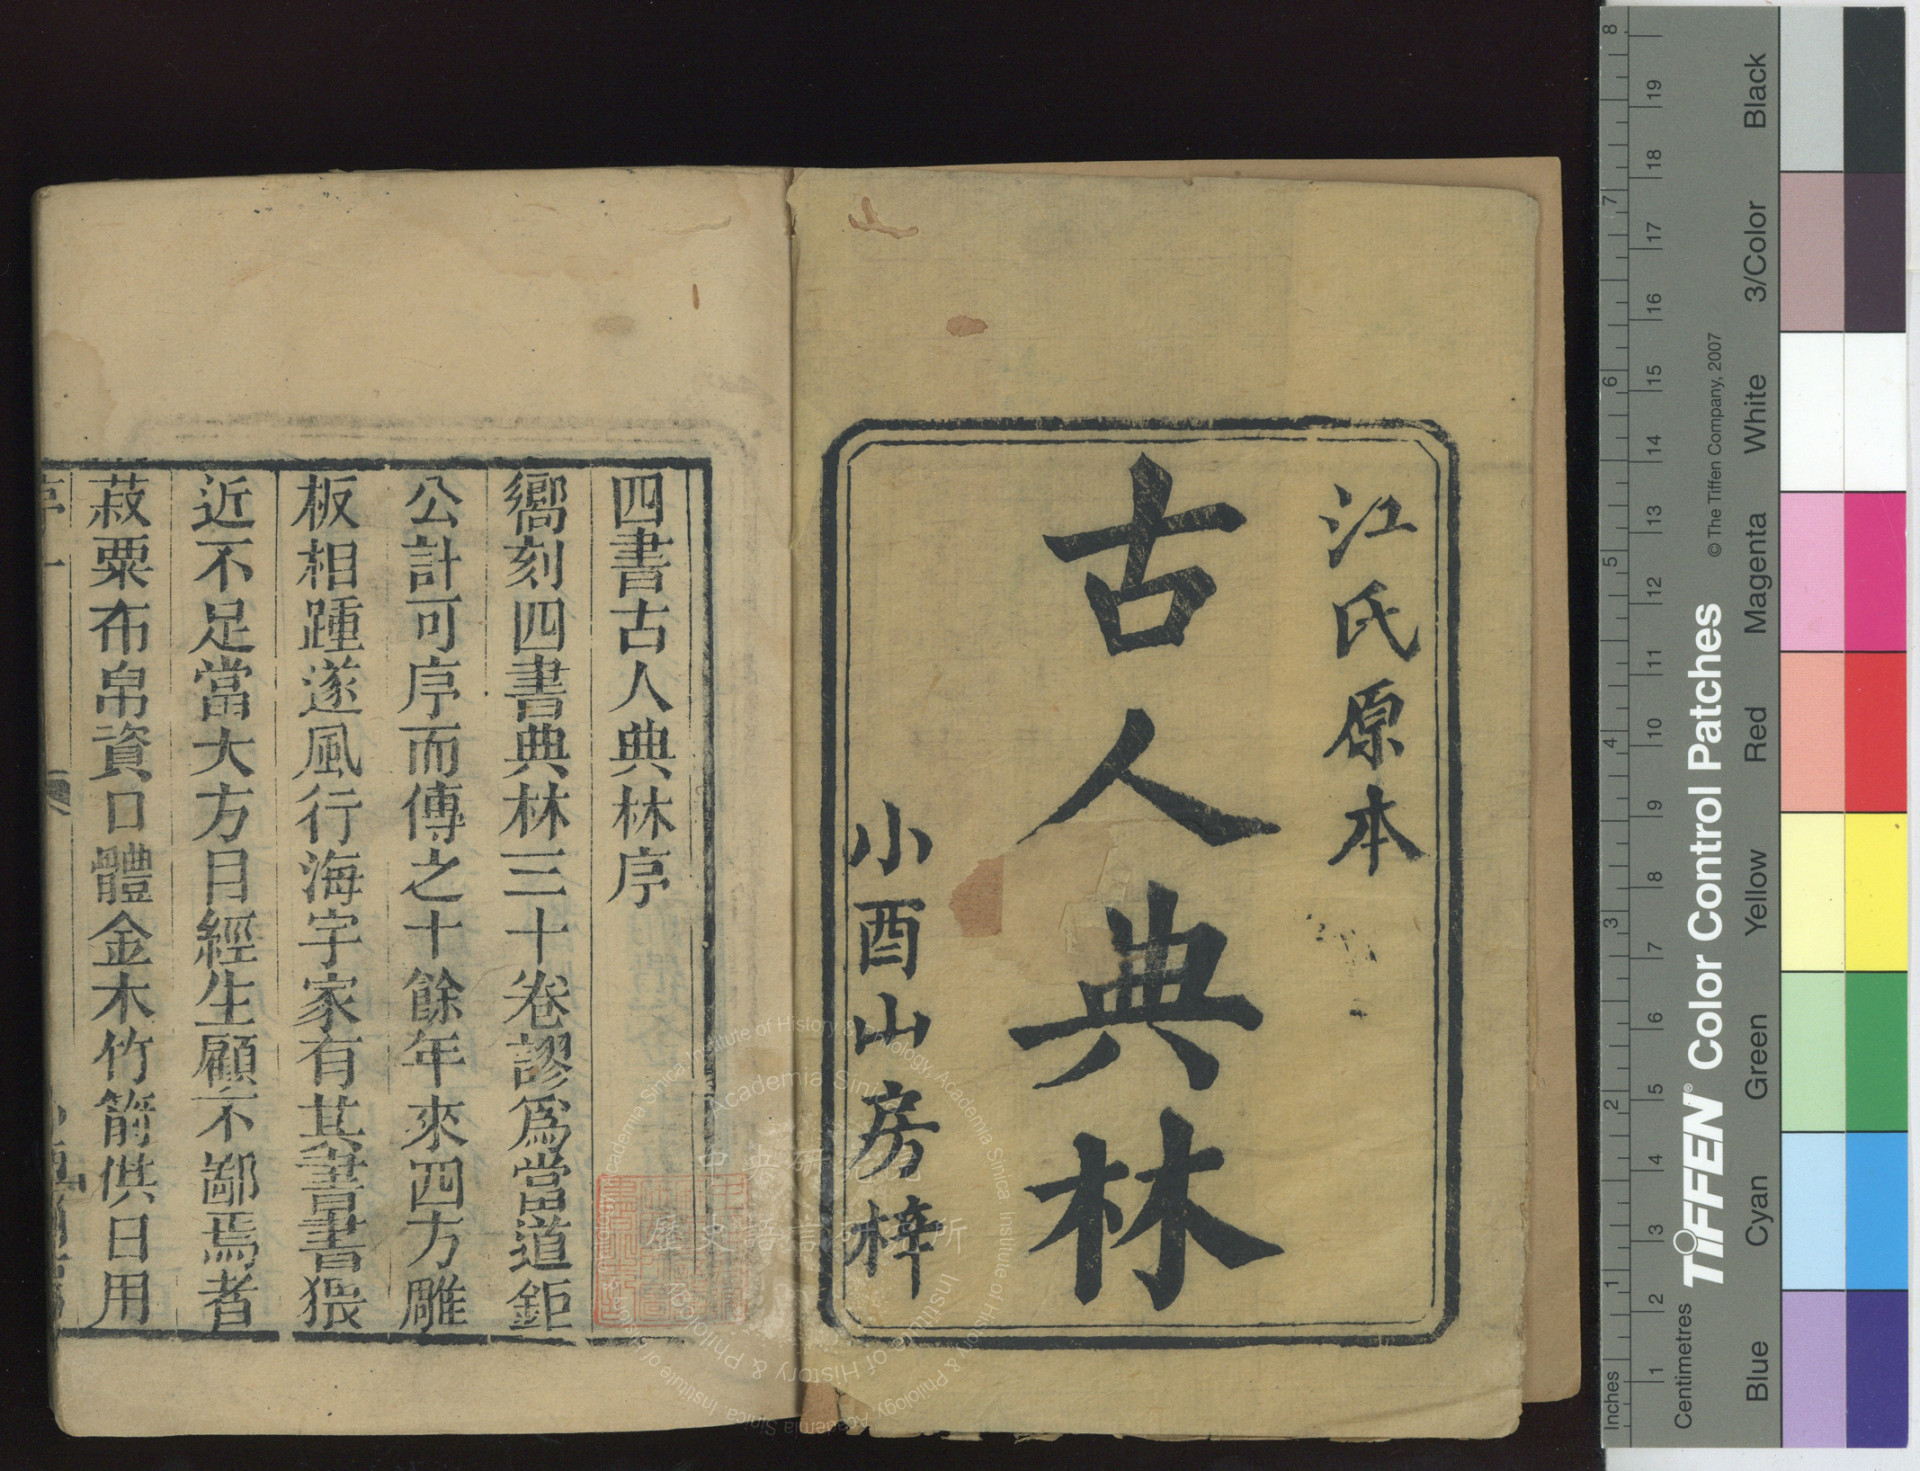 江氏原本
古人典林
小酉山房梓
四書古人典林序
嚮刻四書典林三十卷謬爲當道鉅
公計可序而傳之十餘年來四方雕
板相踵遂風行海宇家有其書書猥
近不足當大方目經生顧不鄙焉者
菽粟布帛資口體金木竹箭供日用
序 一
中央研究院
歷史語言研究所
Institute of History & Philology, Academia Sinica
Inches
1
2
3
4
5
6
7
8
Centimetres
1
2
3
4
5
6
7
8
9
10
11
12
13
14
15
16
17
18
19
TIFFEN® Color Control Patches
© The Tiffen Company, 2007
Blue
Cyan
Green
Yellow
Red
Magenta
White
3/Color
Black